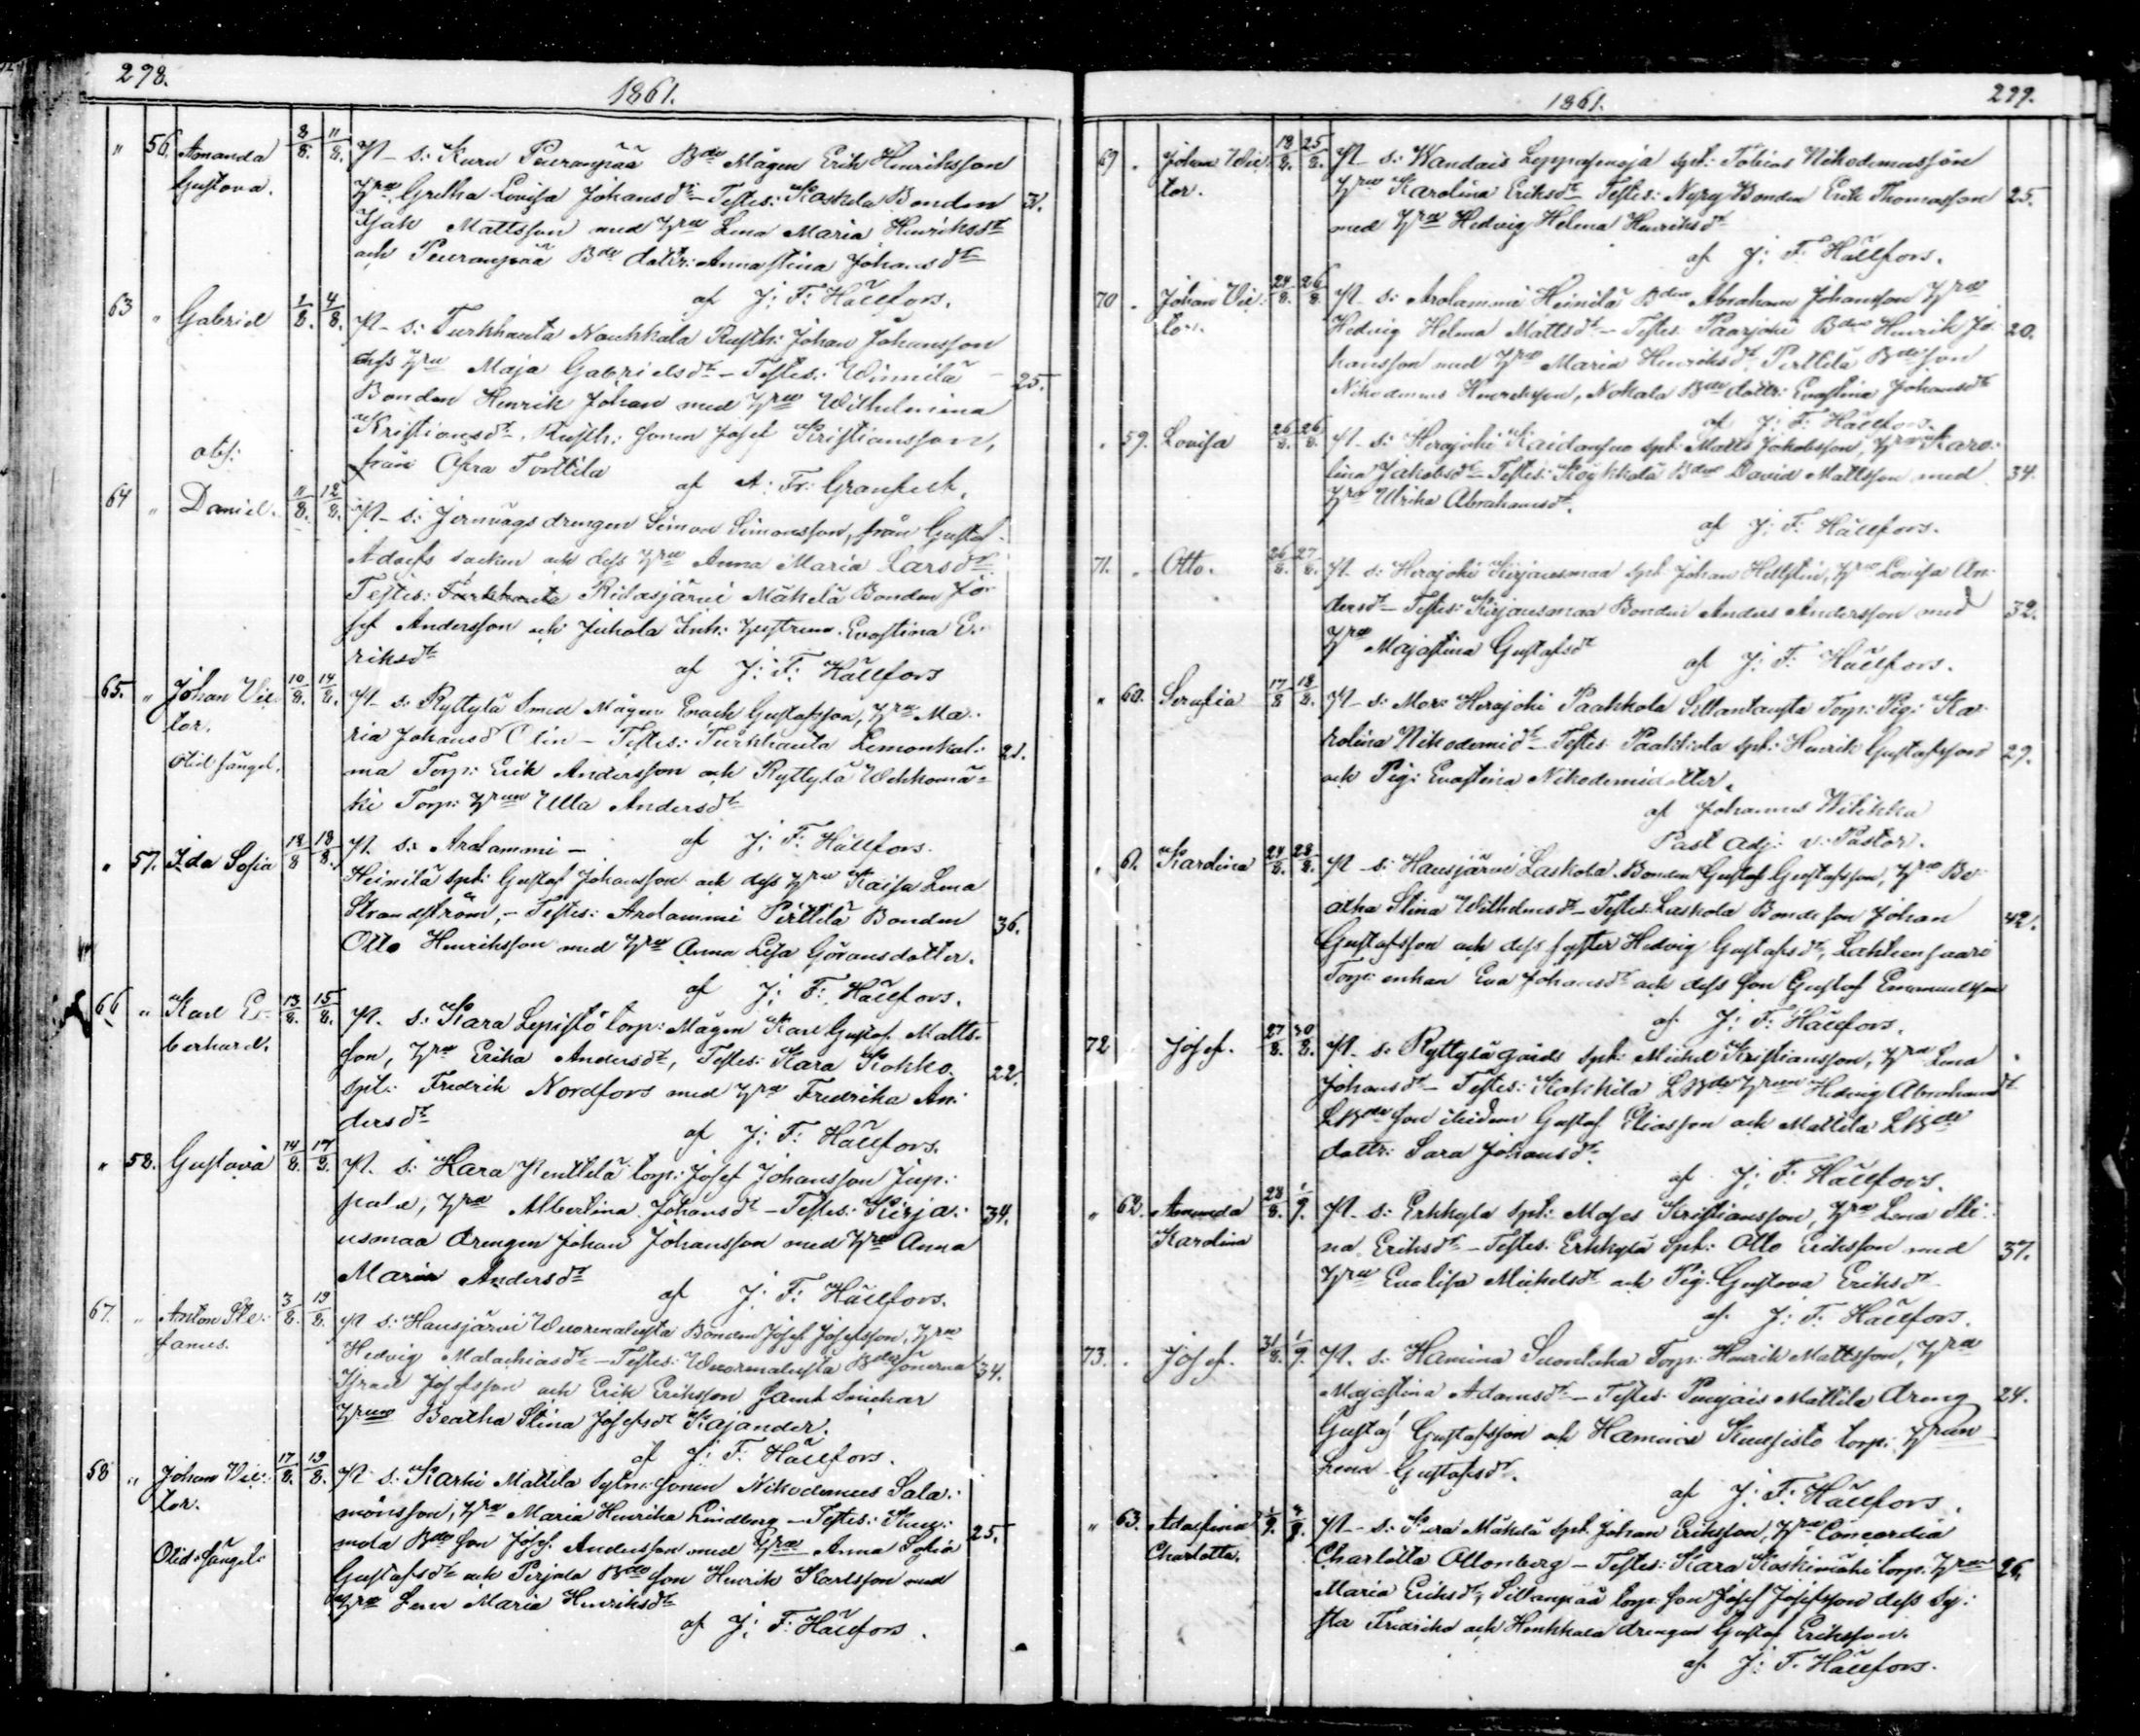 278.
1861.
" 56. Amanda 8/8. 11/8. P. s: Kuru Peuranpää Bde Mågen Erik Henriksson
Gustava. Hru Gretha Lovisa Johansdr – Testes: Koskela Bonden 31.
Isak Mattsson med Hru Lena Maria Henriksdr
och Peuranpää Bde dottr: Annastina Johansdr
af J: F: Hällfors.
63 " Gabriel 1/8. 4/8. P. s: Turkhauta Naukkala Rusth: Johan Johansson
dess Hru Maja Gabrielsdr – Testes: Winnilä 25.
Bonden Henrik Johan med Hru Wilhelmina
Kristiansdr, Rusth: sonen Josef Kristiansson,
från Torttila
af A: Fr: Granfelt.
64 " Daniel. 11/8. 12/8. P. s: Jernvägsdrengen Simon Simonsson, från Gustaf
Adolfs socken och dess Hru Anna Maria Larsdr
Testes: Turkhauta Ridasjärvi Mäkelä Bonden Jo-
sef Andersson och Juhola Inh: hustrun Evastina E-
riksdr
af J: F: Hällfors
65. " Johan Vic- 10/8. 14/8. P. s: Ryttylä Smed Mågen Enoch Gustafsson, Hru Ma-
tor. ria Johansd Olin – Testes: Turkhauta Lemonkul- 21.
ma Torp: Erik Andersson och Ryttylä Wehkomä-
ki Torp: Hrun Ulla Andersdr
af J: F: Hällfors.
" 57. Ida Sofia 18/8 18/8. P. s: Arolammi –
Heinilä spt: Gustaf Johansson och dess Hru Kaisa Lena
Strandström, – Testes: Arolammi Pirttilä Bonden 36.
Otto Henriksson med Hru Anna Lisa Göransdotter.
af J: F: Hällfors.
66 " Karl E- 13/8. 15/8. P. s: Kara Lepistö torp: Mågen Karl Gustaf Matts-
berhard. son, Hru Erika Andersdr, Testes: Kara Kokko 22.
spt: Fredrik Nordfors med Hru Fredrika An-
dersdr
af J: F: Hällfors.
" 58. Gustava 14/8. 17/8. P. s: Kara Penttilä torp: Josef Johansson
Hru Albertina Johansdr – Testes: Kirja- 34.
usmaa drengen Johan Johansson med Hru Anna
Maria Andersdr
af J: F: Hällfors.
67. " Anton Ste- 3/8. 19/8. P. s: Hausjärvi Wuorenalusta Bonden Josef Josefsson, Hru
fanus. Hedvig Malachiasdr – Testes: Wuorenalusta Bde sönerna 34.
Israel Josefsson och Erik Eriksson samt Snickar
Hrun Beatha Stina Josefsdr Kajander.
af J: F: Hällfors.
68 " Johan Vic- 17/8. 19/8. P. s: Karhi Mattila Sytn: sonen Nikodemus Salo-
tor. monsson, Hru Maria Henrika Lindberg – Testes: 25.
Bde son Josef Andersson med Hru Anna Sofia
Gustafsdr och Perjala Bde son Henrik Karlsson med
Hru Lena Maria Henriksdr
af J: F: Hällfors.
1861.
299.
69 " Johan Vic- 19/8. 25/8. P. s: Wandais Leppäsenoja spt: Tobias Nikodemusson
tor. Hru Karolina Eriksdr Testes: Nyry Bonden Erik Thomasson 25.
med Hru Hedvig Helena Henriksdr
af J: F: Hällfors.
70 " Johan Vic- 24/8. 26/8. P. s: Arolammi Heinilä Bden Abraham Johansson Hru
tor. Hedvig Helena Mattsdr – Testes: Paarjoki Bden Henrik Jo- 20.
hansson med Hru Maria Henriksdr, Pirttilä Bde son
Nikodemus Henriksson, Nokala Bde dottr: Evastina Johansdr
af J: F: Hällfors.
" 59. Lovisa 26/8. 26/8. P. s: Herajoki spt: Matts Jakobsson, Hru Karo-
lina Jakobsdr – Testes: Bden David Mattsson med 34.
Hru Ulrika Abrahamsdr.
af J: F: Hällfors.
71. " Otto. 26/8. 27/8. P. s: Herajoki Kirjausmaa spt: Johan Hellstén, Hru Lovisa An-
dersdr – Testes: Kirjausmaa Bonden Anders Andersson med 32.
Hru Majastina Gustafsdr
af J: F: Hällfors.
" 60. Serafia 17/8 18/8. P. s: Mor: Herajoki Paahkola Siltanlausta Torp: Pig: Ka-
rolina Nikodemidr – Testes: Paahkola spt: Henrik Gustafsson 29.
och Pig: Evastina Nikodemidotter.
af Johannes Wilikka
Past. Adj: v: Pastor.
" 61. Karolina 24/8. 28/8. P. s: Hausjärvi Laskola Bonden Gustaf Gustafsson, Hru Be-
atha Stina Wilhelmsdr – Testes: Laskola Bonde son Johan 42.
Gustafsson och dess syster Hedvig Gustafsdr, Lahtensaari
Torp: enkan Eva Johansdr och dess son Gustaf Emanuelsson
af J: F: Hällfors.
72 Josef. 27/8. 30/8. P. s: Ryttylä gårds spt: Michel Kristiansson, Hru Lena
Johansdr – Testes: Kaskela LBde Hrun Hedvig Abrahamsdr
LBde son ibidem Gustaf Eliasson och Mattila LBde
dottr: Sara Johansdr.
af J: F: Hällfors.
" 62. Amanda 28/8. 1/9. P. s: Erkkylä spt: Moses Kristiansson, Hru Lena Sti-
Karolina na Eriksdr – Testes: Erkkylä spt: Otto Eriksson med 37.
Hru Evalisa Michelsdr och Pig: Gustava Eriksdr
af J: F: Hällfors.
73. " Josef. 31/8. 1/9. P. s: Hamina Suontaka Torp: Henrik Mattsson, Hru
Majastina Adamsdr – Testes: Mattila dreng 24.
Gustaf Gustafsson och Hamina Kuusisto torp: Hrun
Lena Gustafsdr.
af J: F: Hällfors.
" 63. Adolfina P. s: Kara Mäkelä spt: Johan Eriksson, Hru Concordia
Charlotta. Charlotta Ottonberg – Testes: Kara Koskimäki torp: Hrun 26.
Maria Eriksdr, Sillanpää torp: son Josef Josefsson dess sy-
ster Fredrika och Henkkala drengen Gustaf Eriksson.
af J: F: Hällfors.